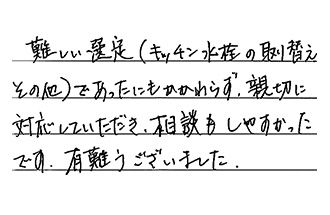 難しい選定(キッチン水栓の取替え
その他)であったにもかかわらず、親切に
対応していただき、相談もしやすかった
です。有難うございました。